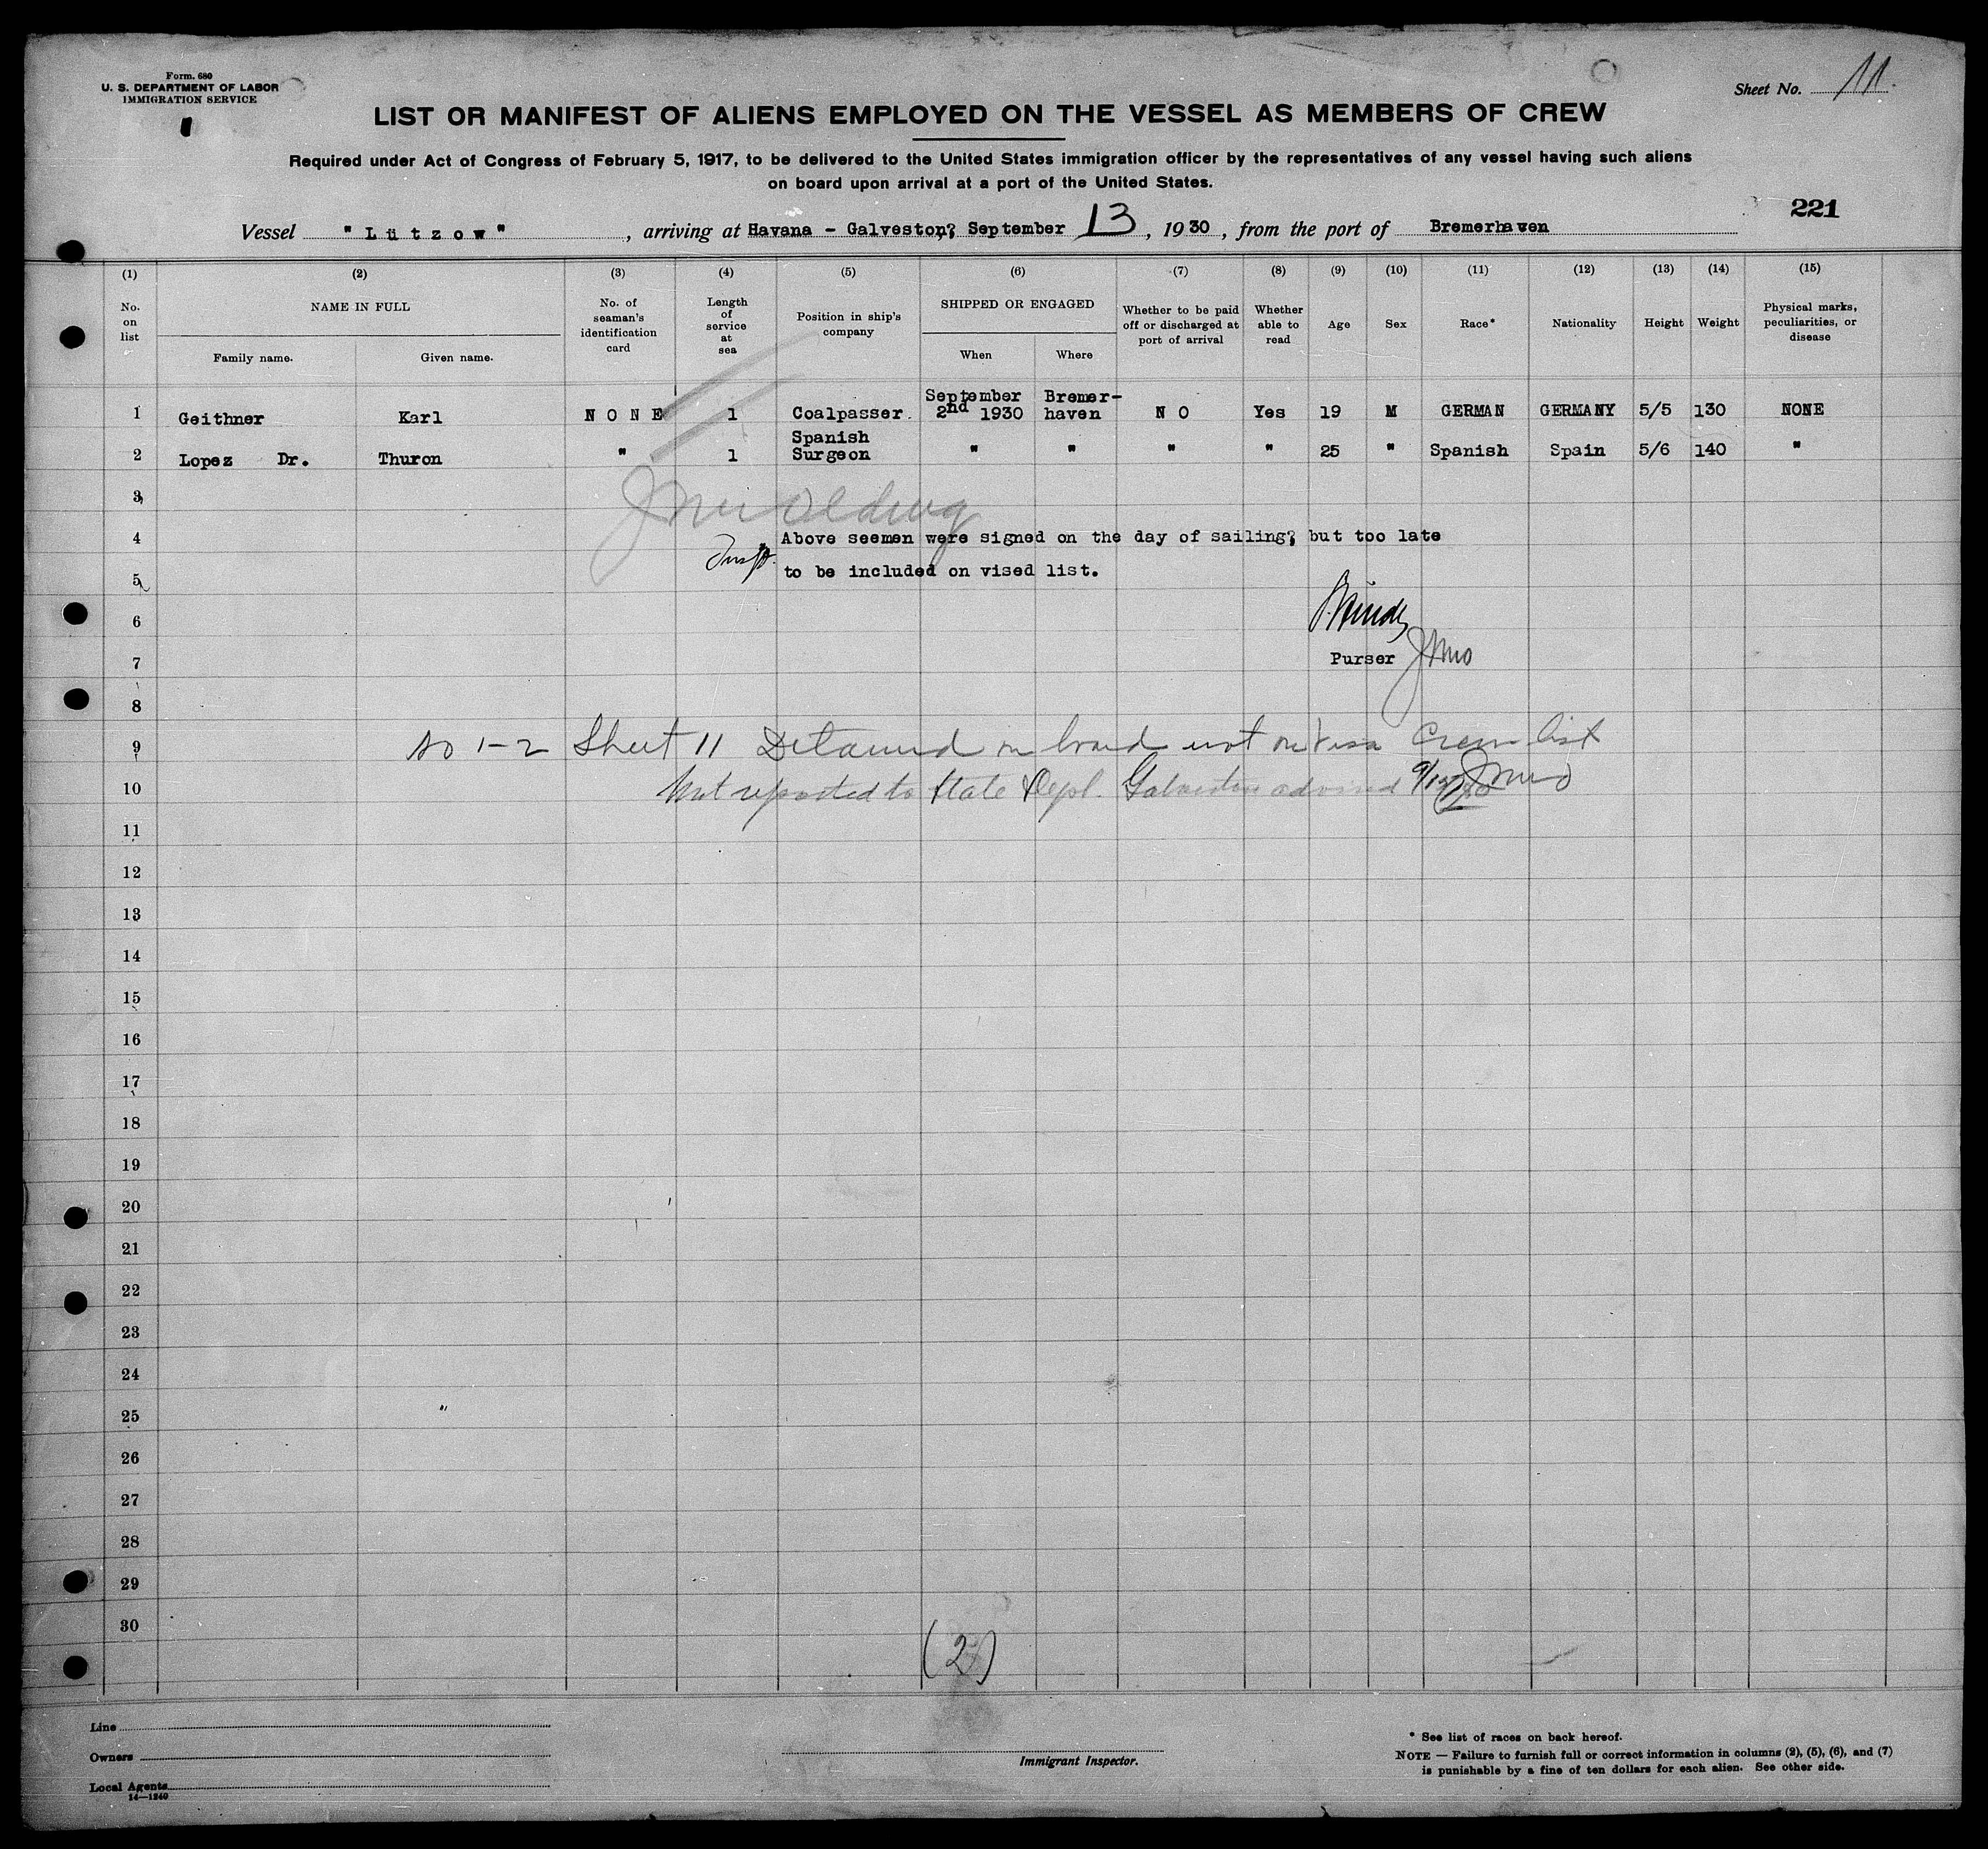 Form. 680
U. S. DEPARTMENT OF LABOR
IMMIGRATION SERVICE
Sheet No. 11
LIST OR MANIFEST OF ALIENS EMPLOYED ON THE VESSEL AS MEMBERS OF CREW
Required under Act of Congress of February 5, 1917, to be delivered to the United States immigration officer by the representatives of any vessel having such aliens
on board upon arrival at a port of the United States.
221
Vessel "Lützow", arriving at Havana - Galveston, September 13, 1930, from the port of Bremerhaven
(1) (2) (3) (4) (5) (6) (7) (8) (9) (10) (11) (12) (13) (14) (15)
No. on list
NAME IN FULL
Family name. Given name.
No. of seaman's identification card
Length of service at sea
Position in ship's company
SHIPPED OR ENGAGED
When Where
Whether to be paid off or discharged at port of arrival
Whether able to read
Age
Sex
Race*
Nationality
Height
Weight
Physical marks, peculiarities, or disease
1 Geithner Karl NONE 1 Coalpasser. September 2nd 1930 Bremer-haven NO Yes 19 M GERMAN GERMANY 5/5 130 NONE
2 Lopez Dr. Thuron " 1 Spanish Surgeon " " " " 25 " Spanish Spain 5/6 140 "
3
4 Above seemen were signed on the day of sailing, but too late
Insp.
5 to be included on vised list.
6
7 Purser
8
9 No 1-2 Sheet 11 Detained on board not on visa Crew list
10 Not reported to State Dept. Galveston advised
11
12
13
14
15
16
17
18
19
20
21
22
23
24
25
26
27
28
29
30
(2)
Line
Owners
Local Agents
14—1240
Immigrant Inspector.
* See list of races on back hereof.
NOTE — Failure to furnish full or correct information in columns (2), (5), (6), and (7)
is punishable by a fine of ten dollars for each alien. See other side.